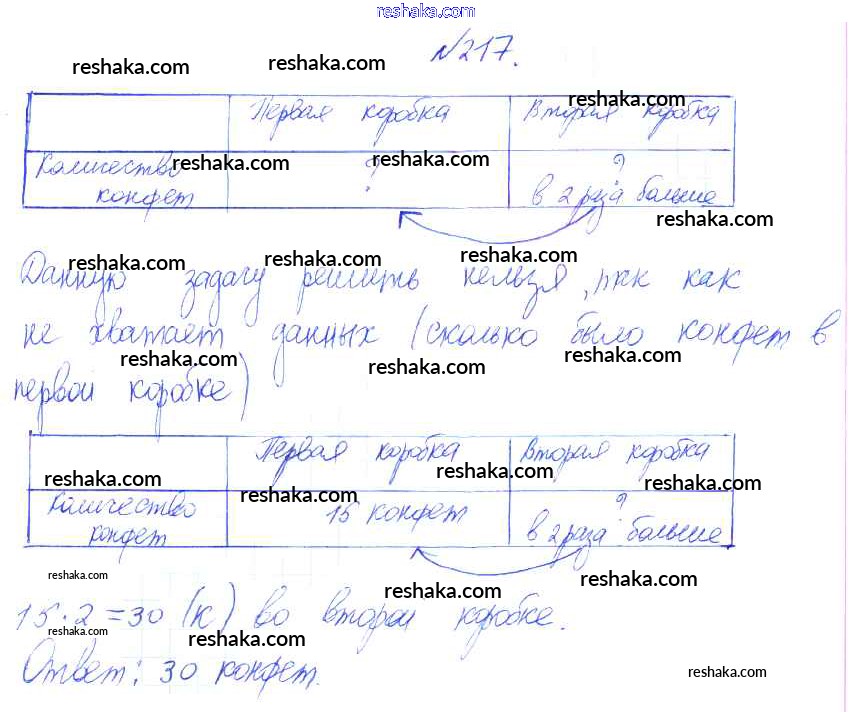 reshaka.com
№217.
reshaka.com reshaka.com
Первая коробка Вторая коробка
reshaka.com
Количество ? ?
reshaka.com reshaka.com
конфет в 2 раза больше
reshaka.com
Данную задачу решить нельзя, так как
reshaka.com reshaka.com reshaka.com
не хватает данных (сколько было конфет в
reshaka.com reshaka.com reshaka.com
первой коробке)
Первая коробка Вторая коробка
reshaka.com reshaka.com reshaka.com reshaka.com
Количество 15 конфет ?
конфет в 2 раза больше
reshaka.com reshaka.com reshaka.com
15·2=30 (к) во второй коробке.
reshaka.com reshaka.com
Ответ: 30 конфет.
reshaka.com